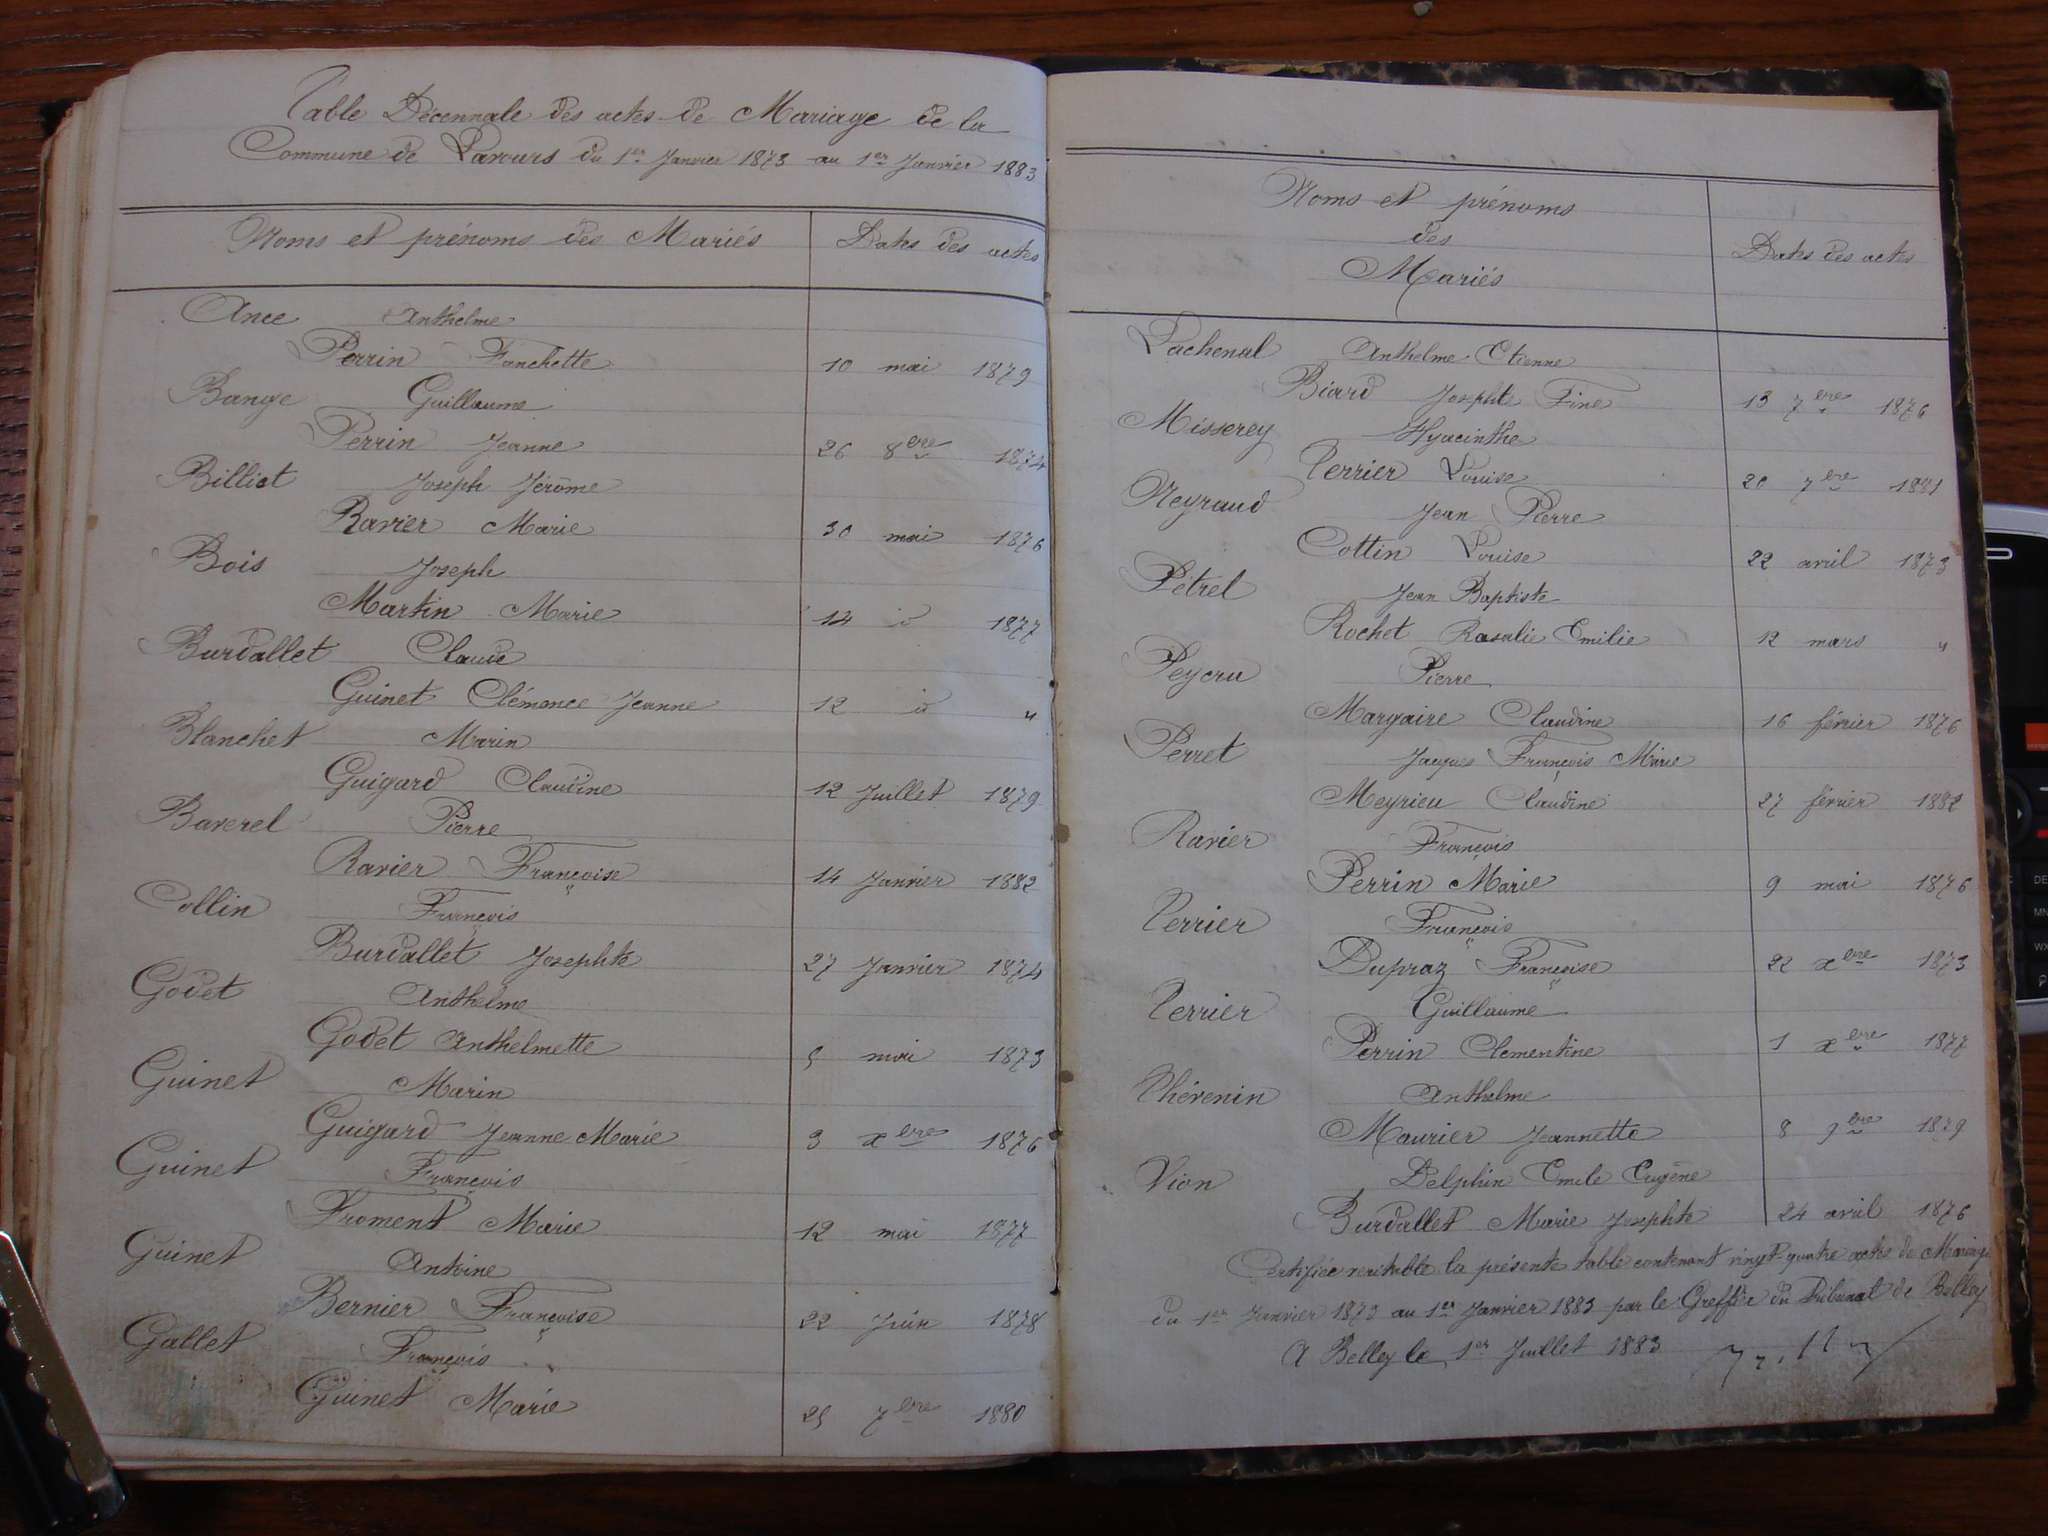 Table Décennale des actes de Mariage de la
Commune de Lavours du 1er Janvier 1873 au 1er Janvier 1883
Noms et prénoms des Mariés Dates des actes
Ance Anthelme
Perrin Fanchette 10 mai 1879
Bange Guillaume
Perrin Jeanne 26 8bre 1874
Billiot Joseph Jérôme
Ravier Marie 30 mai 1876
Bois Joseph
Martin Marie 14 d 1877
Burdallet Claude
Guinet Clémence Jeanne 12 d "
Blanchet Marin
Guigard Claudine 12 Juillet 1879
Baverel Pierre
Ravier Françoise 14 Janvier 1882
Collin François
Burdallet Josephte 27 Janvier 1874
Godet Anthelme
Godet Anthelmette 5 mai 1873
Guinet Marin
Guigard Jeanne Marie 3 xbre 1876
Guinet François
Froment Marie 12 mai 1877
Guinet Antoine
Bernier Françoise 22 Juin 1878
Gallet François
Guinet Marie 25 7bre 1880
Noms et prénoms
des
Mariés
Dates des actes
Lachenal Anthelme Etienne
Biard Josephte Fine 13 7bre 1876
Misserey Hyacinthe
Perrier Louise 20 7bre 1881
Neyraud Jean Pierre
Cottin Louise 22 avril 1873
Pétrel Jean Baptiste
Rochet Rosalie Emilie 12 mars "
Peycru Pierre
Margaire Claudine 16 février 1876
Perret Jacques François Marie
Meyrieu Claudine 27 février 1882
Ravier François
Perrin Marie 9 mai 1876
Perrier François
Dupraz Françoise 22 xbre 1873
Perrier Guillaume
Perrin Clementine 1 xbre 1877
Thévenin Anthelme
Maurier Jeannette 8 9bre 1879
Vion Delphin Emile Eugène
Burdallet Marie Josephte 24 avril 1876
Certifiée veritable la présente table contenant vingt-quatre actes de Mariage
du 1er Janvier 1873 au 1er Janvier 1883 par le Greffier du Tribunal de Belley
A Belley le 1er Juillet 1883